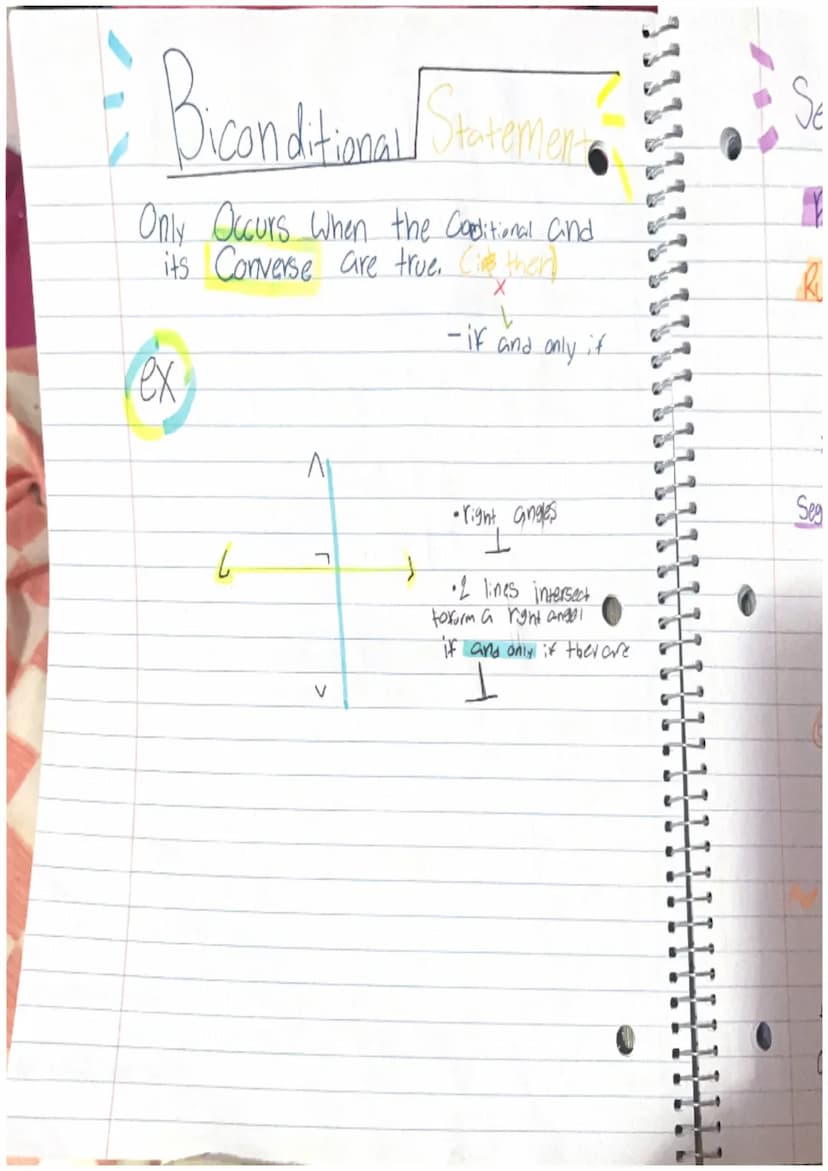 Biconditional Statement
Only Occurs when the Conditional and
its Converse are true. (if then)
x
- if and only if
ex
• right angles
⊥
• 2 lines intersect
to form a right angel
if and only if they are
⊥
Se
R
Seg